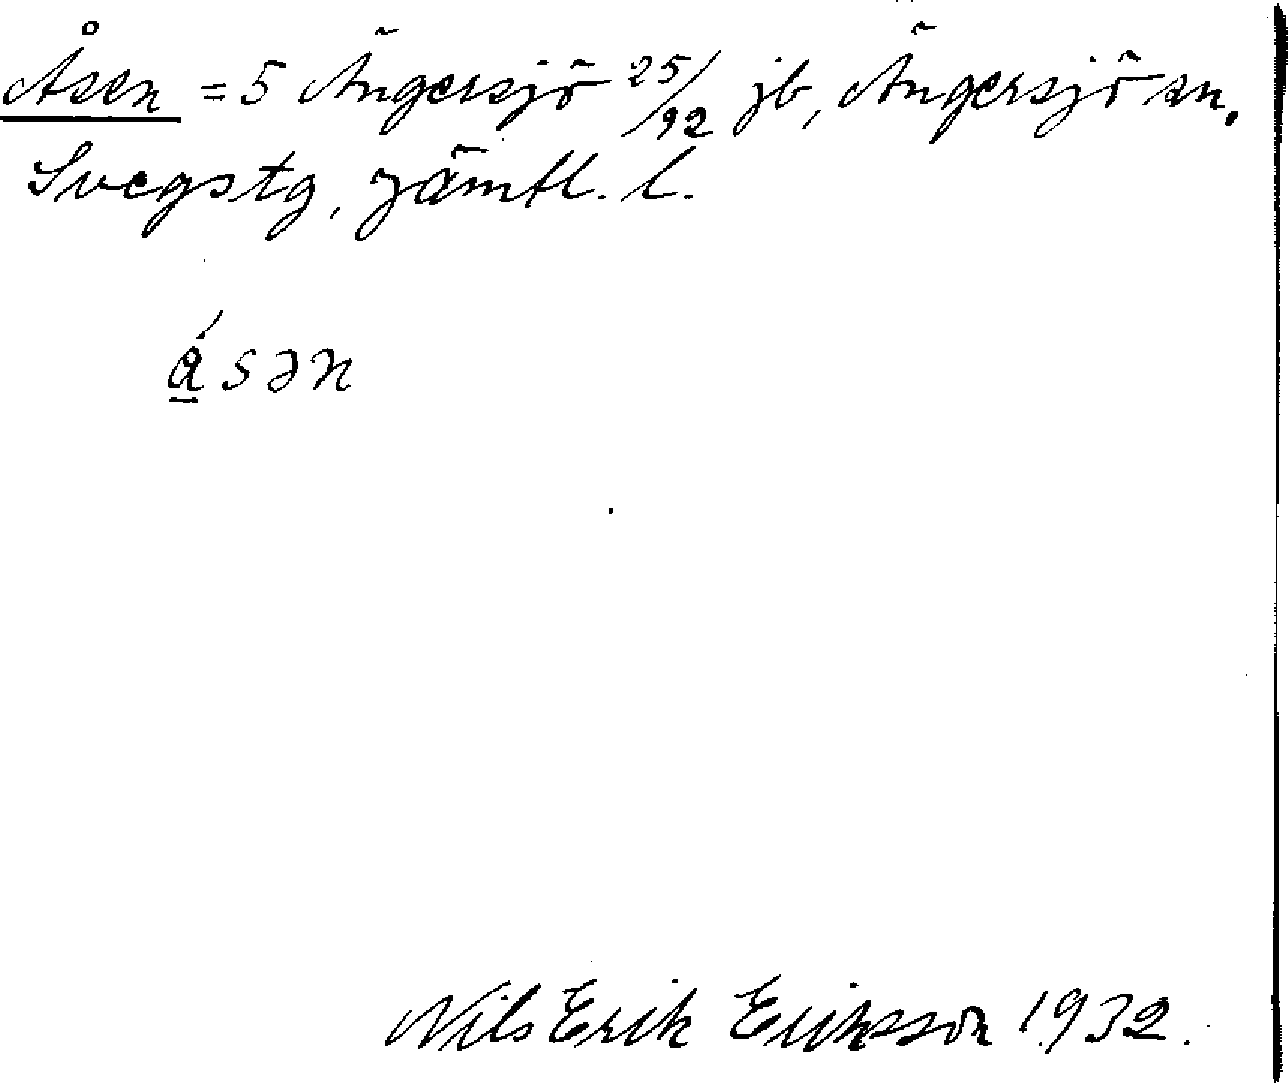 Åsen = 5 Ängersjö 25/92 jb, Ängersjö sn.
Svegs tg, Jämtl. l.
ǻsən
Nils Erik Eriksson 1932.